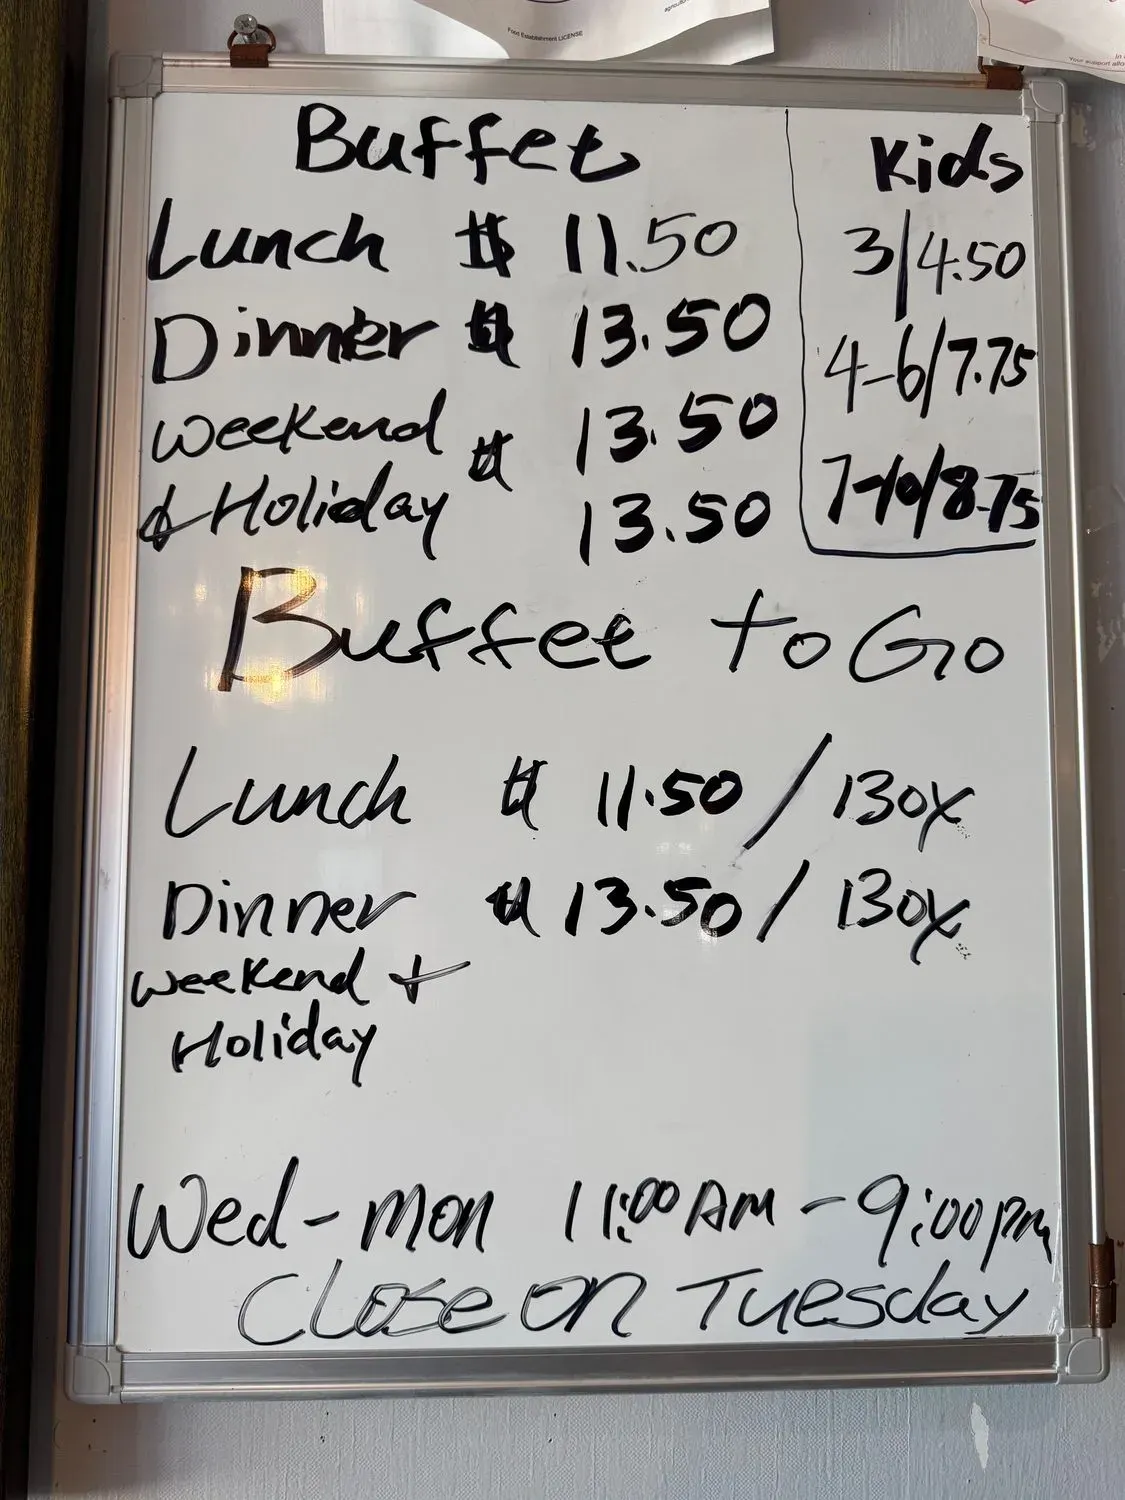 Food Establishment LICENSE
Buffet
Lunch $ 11.50
Dinner $ 13.50
Weekend $ 13.50
& Holiday 13.50
Kids
3/4.50
4-6/7.75
7-10/8.75
Buffet to Go
Lunch $ 11.50 / 1Box
Dinner $ 13.50 / 1Box
Weekend +
Holiday
Wed-Mon 11:00AM-9:00pm
Close on Tuesday